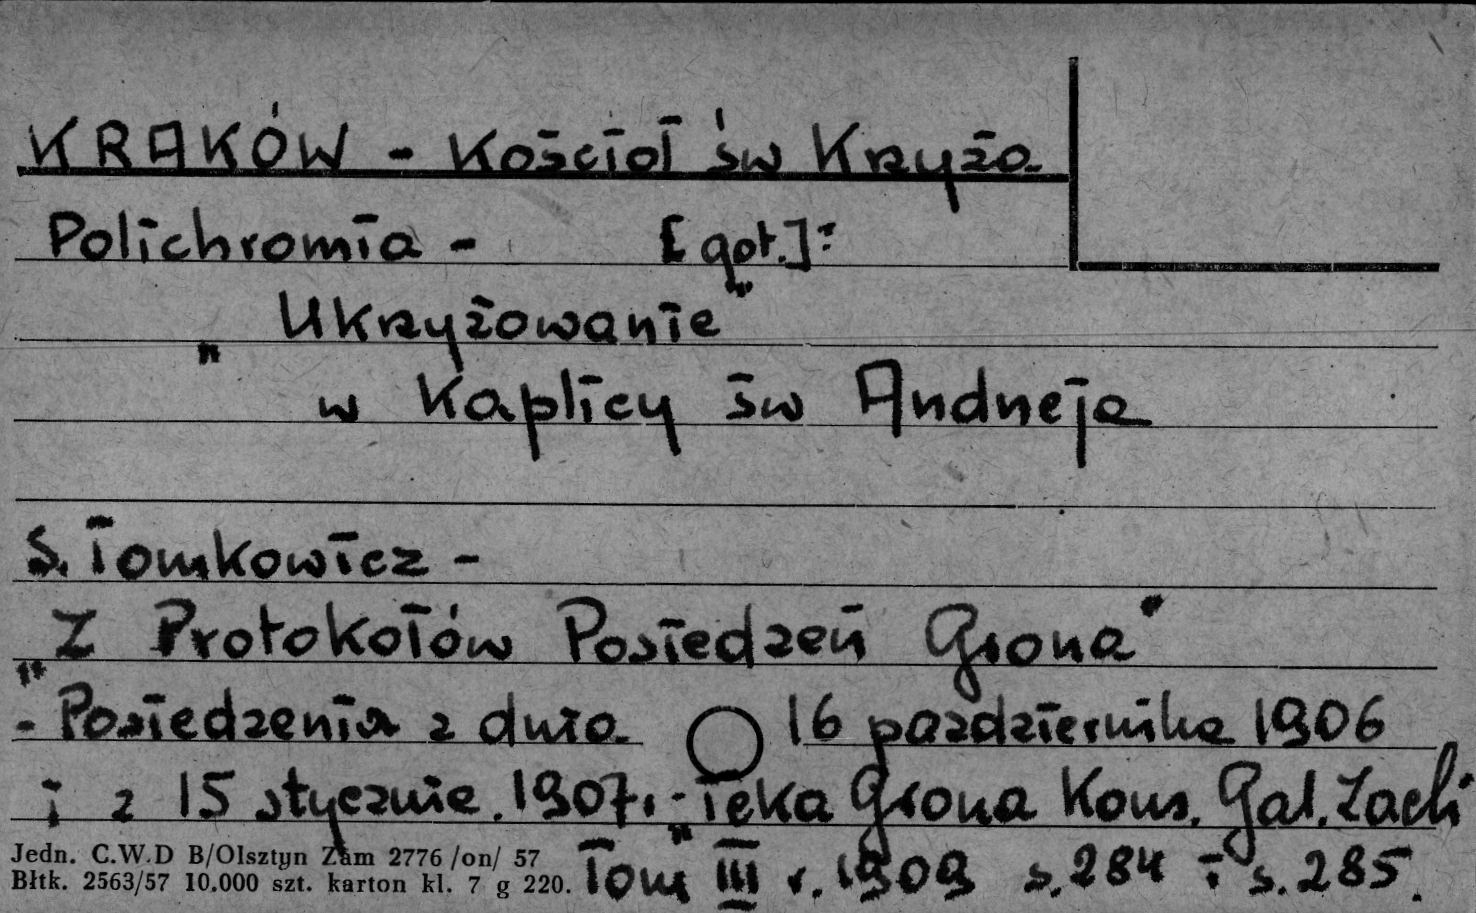 KRAKÓW - Kościół św Krzyża
Polichromia - [got.]:
„Ukrzyżowanie”
w Kaplicy św Andrzeja
S. Tomkowicz -
„Z Protokołów Posiedzeń Grona”
- Posiedzenia z dnia 16 pazdziernika 1906
i z 15 stycznia. 1907r. - „Teka Grona Kons. Gal. Zach
Tom III r. 1909 s. 284 i s. 285.
Jedn. C.W.D B/Olsztyn Zam 2776 /on/ 57
Błtk. 2563/57 10.000 szt. karton kl. 7 g 220.